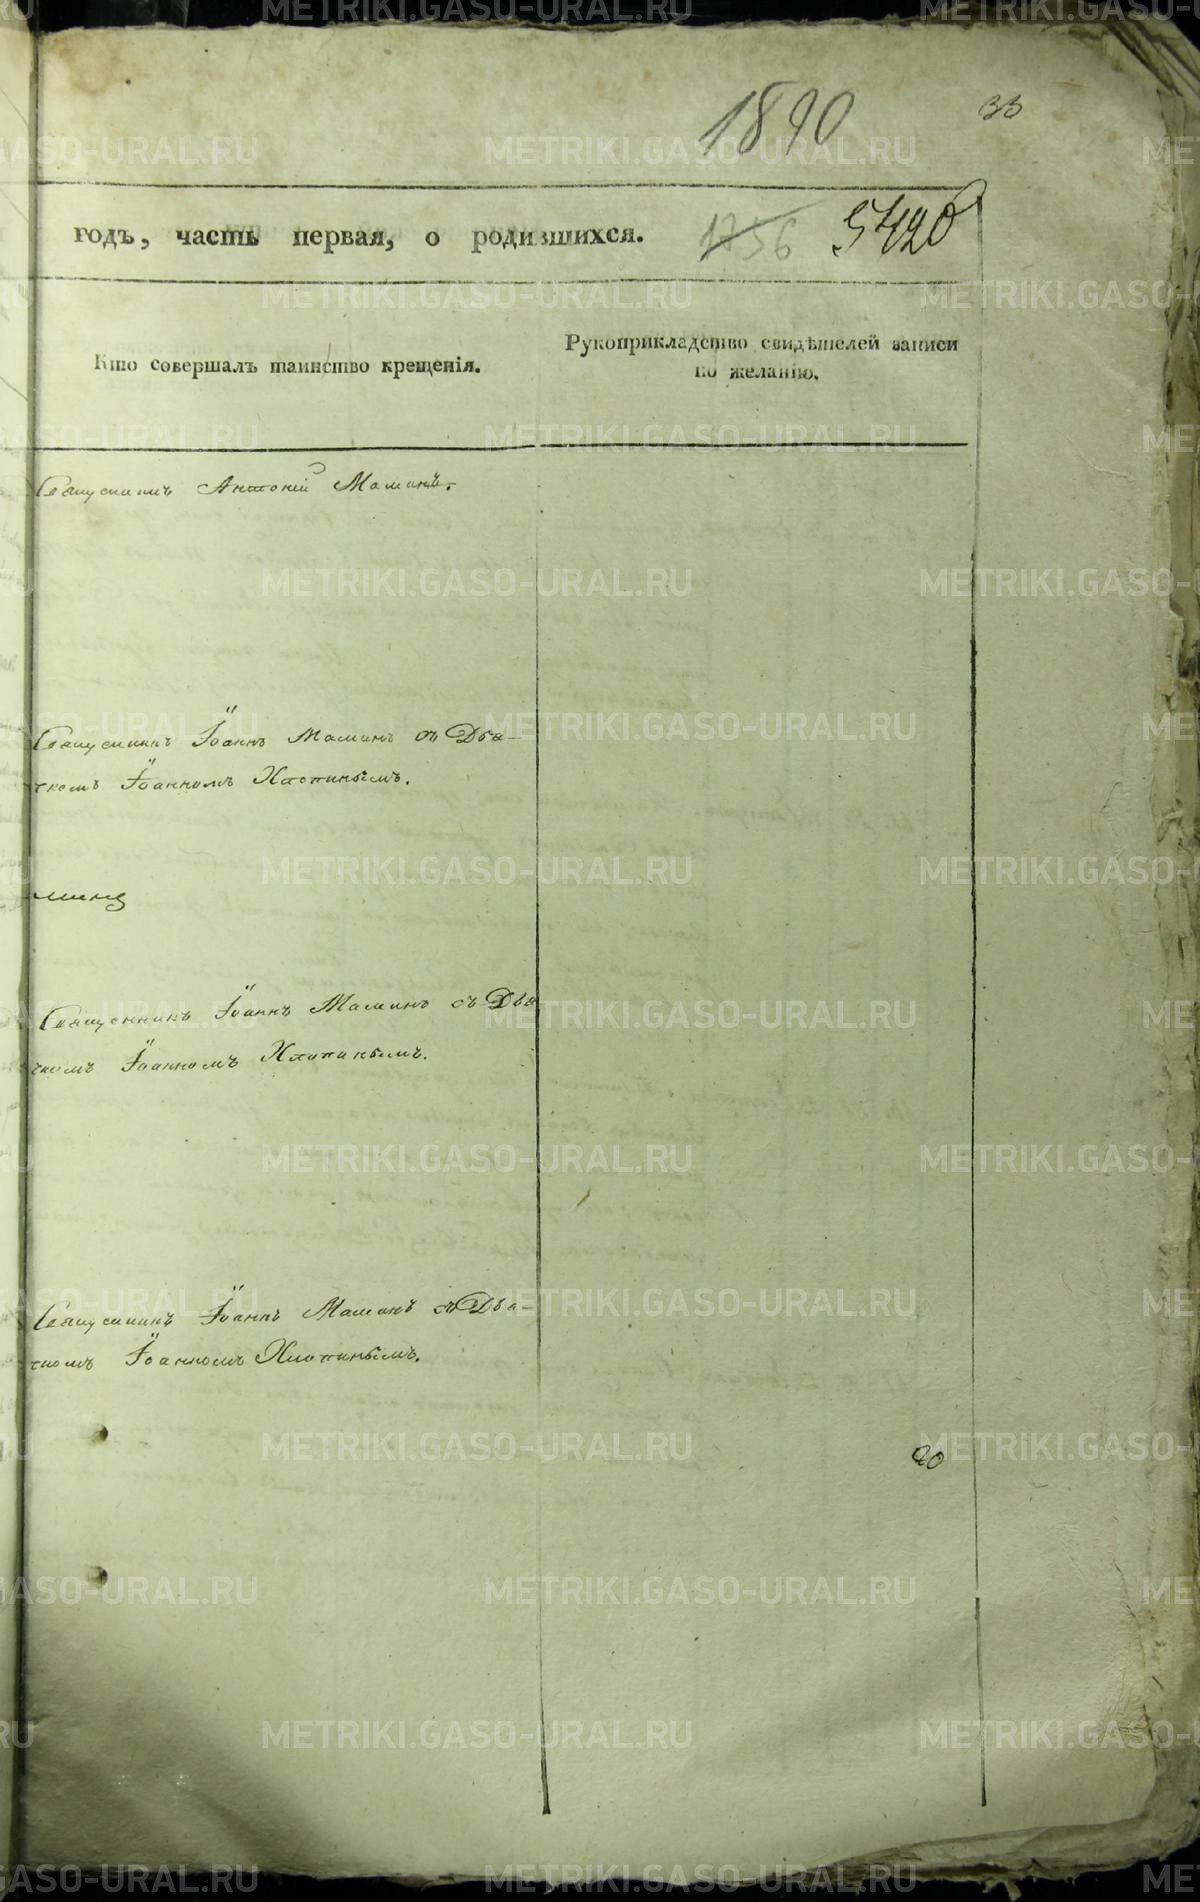 1890
33
годъ, часть первая, о родившихся.
1756 5420
Кто совершалъ таинство крещенія.
Рукоприкладство свидѣтелей записи
по желанію.
Священникъ Антоній Маминъ.
Священникъ Іоаннъ Маминъ съ Дья-
чкомъ Іоанномъ Хлопинымъ.
Священникъ Іоаннъ Маминъ съ Дья
чкомъ Іоанномъ Хлопинымъ.
Священникъ Іоаннъ Маминъ съ Дья-
чкомъ Іоанномъ Хлопинымъ.
20
METRIKI.GASO-URAL.RU